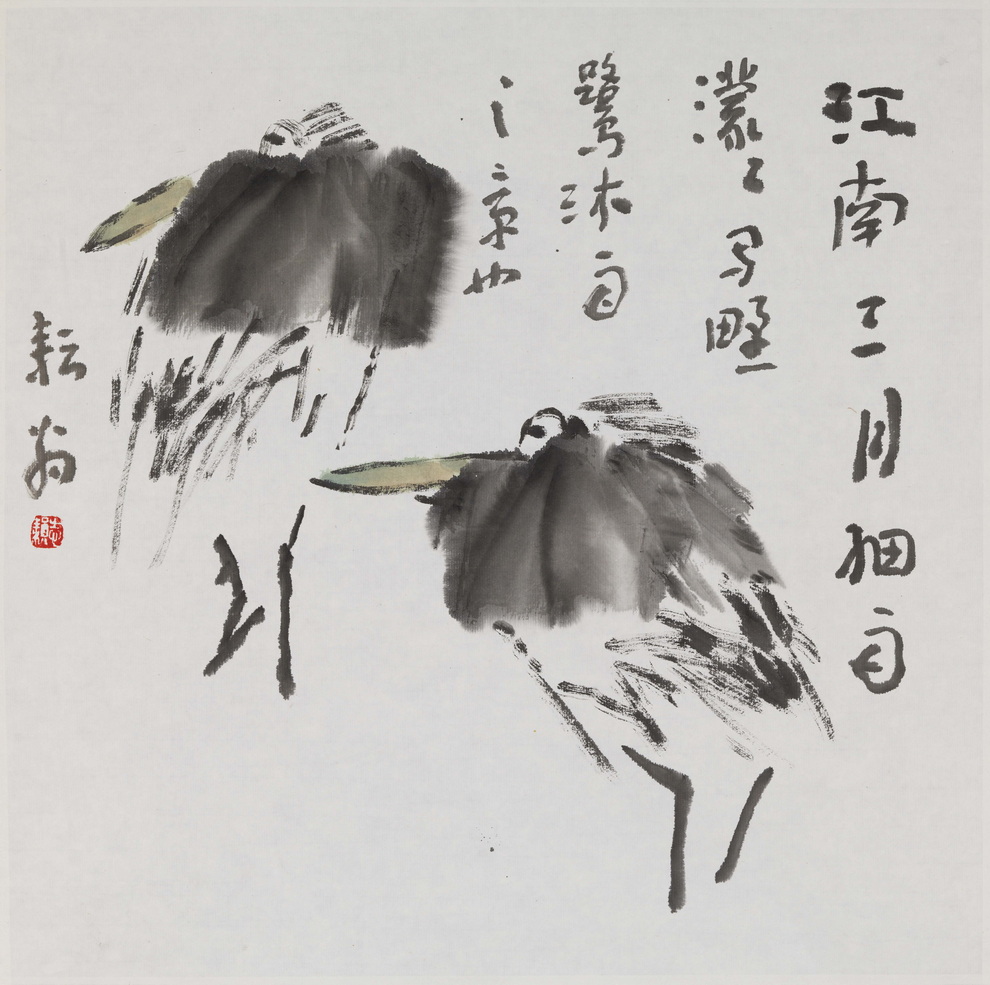 江南三月細雨
濛々写野
鷺沐雨
之景也
耘翁